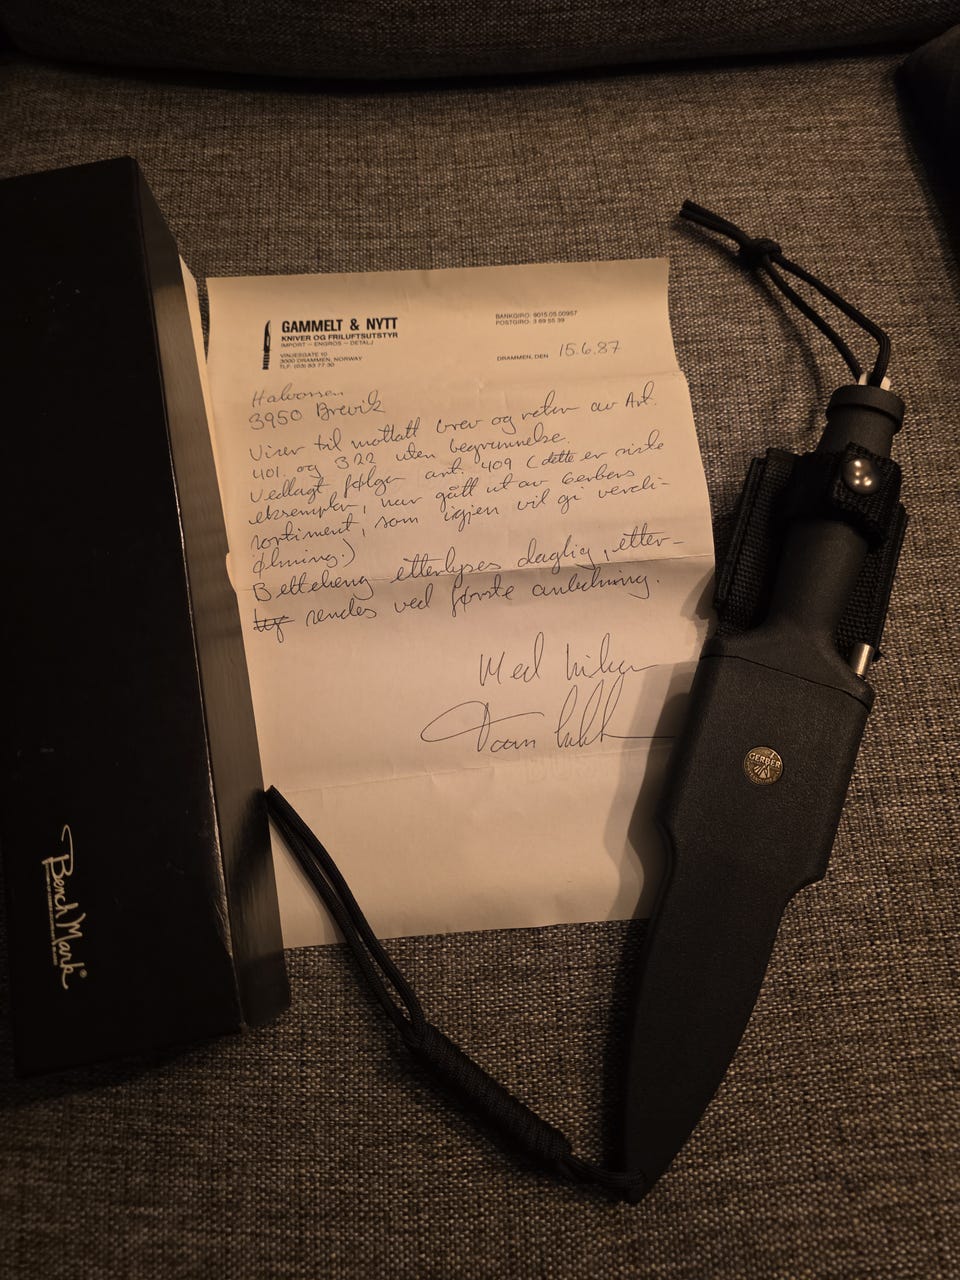 GAMMELT & NYTT
KNIVER OG FRILUFTSUTSTYR
IMPORT – ENGROS – DETALJ
VINJESGATE 10
3000 DRAMMEN, NORWAY
TLF. (03) 83 77 30
BANKGIRO: 9015.05.00957
POSTGIRO: 3 69 55 39
DRAMMEN, DEN 15.6.87
Halvorsen
3950 Brevik
Viser til mottatt brev og retur av Art.
401. og 322 uten begrunnelse.
Vedlagt følger art. 409 (dette er siste
eksemplar, har gått ut av Gerbers
sortiment, som igjen vil gi verdi-
økning.)
Belteheng etterlyses daglig, etter-
sendes ved første anledning.
Med hilsen
GERBER
BenchMark®